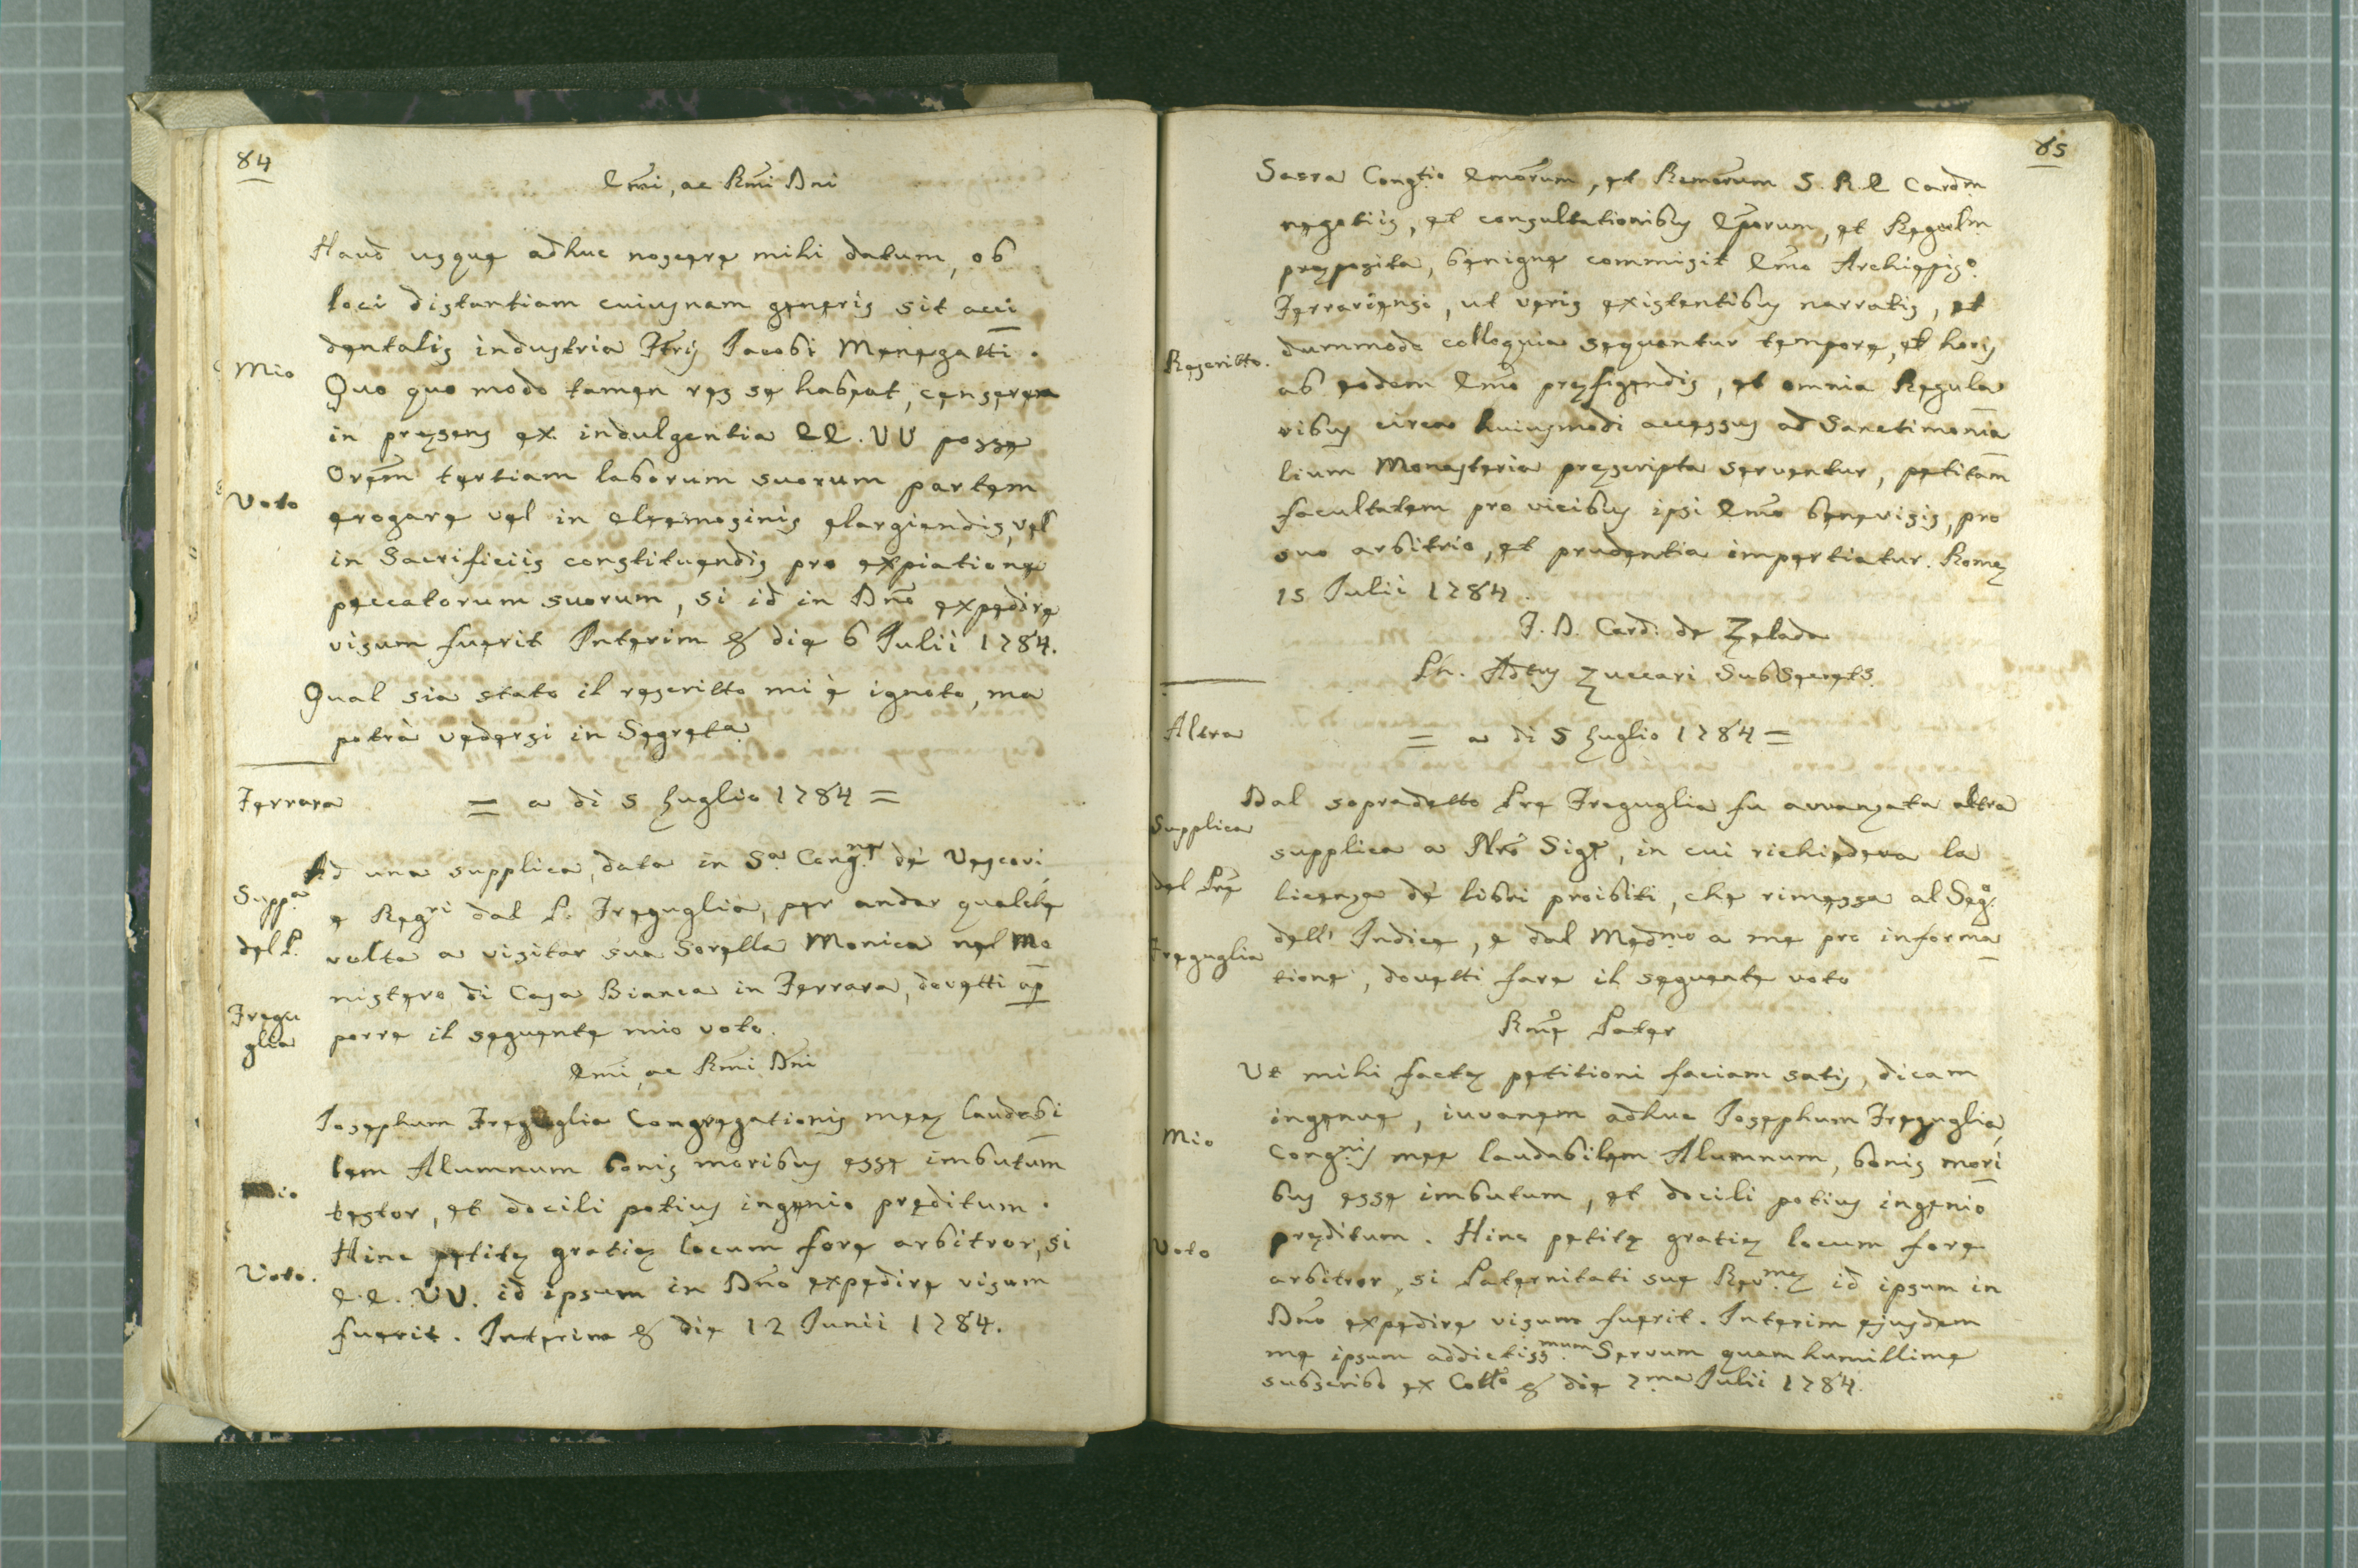 84
Emi, ac Rmi Dni
Haud usque adhuc noscere mihi datum, ob
loci distantiam cuiusnam generis sit acci
dentalis industria Ftris Iacobi Menegatti.
Mio
Quo quo modo tamen res se habeat, censerem
in pręsens ex indulgentia EE. VV posse
Orem tertiam laborum suorum partem
Voto
erogare vel in eleemosinis elargiendis, vel
in Sacrificiis constituendis pro expiatione
peccatorum suorum, si id in Dno expedire
visum fuerit Interim & die 6 Iulii 1784.
Qual sia stato il rescritto mi è ignoto, ma
potrà vedersi in Segreta
Ferrara
= a di 5 Luglio 1784 =
Ad una supplica, data in Sa. Congne. de' Vescovi,
Suppa
e Regri dal P. Freguglia, per andar qualche
del P.
volta a visitar sua Sorella Monica nel Mo
nistero di Casa Bianca in Ferrara, dovetti op
Fregu
glia
porre il seguente mio voto.
Emi, ac Rmi Dni
Iosephum Freguglia Congregationis meę laudabi
lem Alumnum bonis moribus esse imbutum
Mio
testor, et docili potius ingenio pręditum.
Hinc petitę gratię locum fore arbitror, si
Voto.
E.E. VV. id ipsum in Dno expedire visum
fuerit. Interim & die 12 Iunii 1784.
85
Sacra Congtio Emorum, et Rmorum S. R. E Cardm
negotiis, et consultationibus Eporum, et Regulm
pręposita, benigne commisit Emo Archiepiso
Ferrariensi, ut veris existentibus narratis, et
Rescritto.
dummodo colloquia sequantur tempore, et horis
ab eodem Emo pręfigendis, et omnia Regula
ribus circa huiusmodi accessus ad Sanctimonia
lium Monasteria pręscripta serventur, petitam
facultatem pro vicibus ipsi Emo benevisis, pro
suo arbitrio, et prudentia impertiatur. Romę
15 Iulii 1784.
F. D. Card. de Zelada
Ph. Adtus Zuccari SubSecrets.
Altra
= a di 5 Luglio 1784 =
Dal sopradetto Pre Freguglia fu avvanzata altra
Supplica
supplica a Nro Sige, in cui richiedeva la
del Pre
licenza de' libri proibiti, che rimessa al Sego.
dell' Indice, e dal Medmo a me pro informa
Freguglia
tione, dovetti fare il seguente voto
Rme Pater
Ut mihi factę petitioni faciam satis, dicam
ingenue, iuvanem adhuc Iosephum Freguglia,
Mio
Congnis mee laudabilem Alumnum, bonis mori
bus esse imbutum, et docili potius ingenio
Voto
pręditum. Hinc petitę gratię locum fore
arbitror, si Paternitati sue Revmę id ipsum in
Dno expedire visum fuerit. Interim ejusdem
me ipsum addictissmum Servum quam humillime
subscribo ex Collo & die 7ma Iulii 1784.